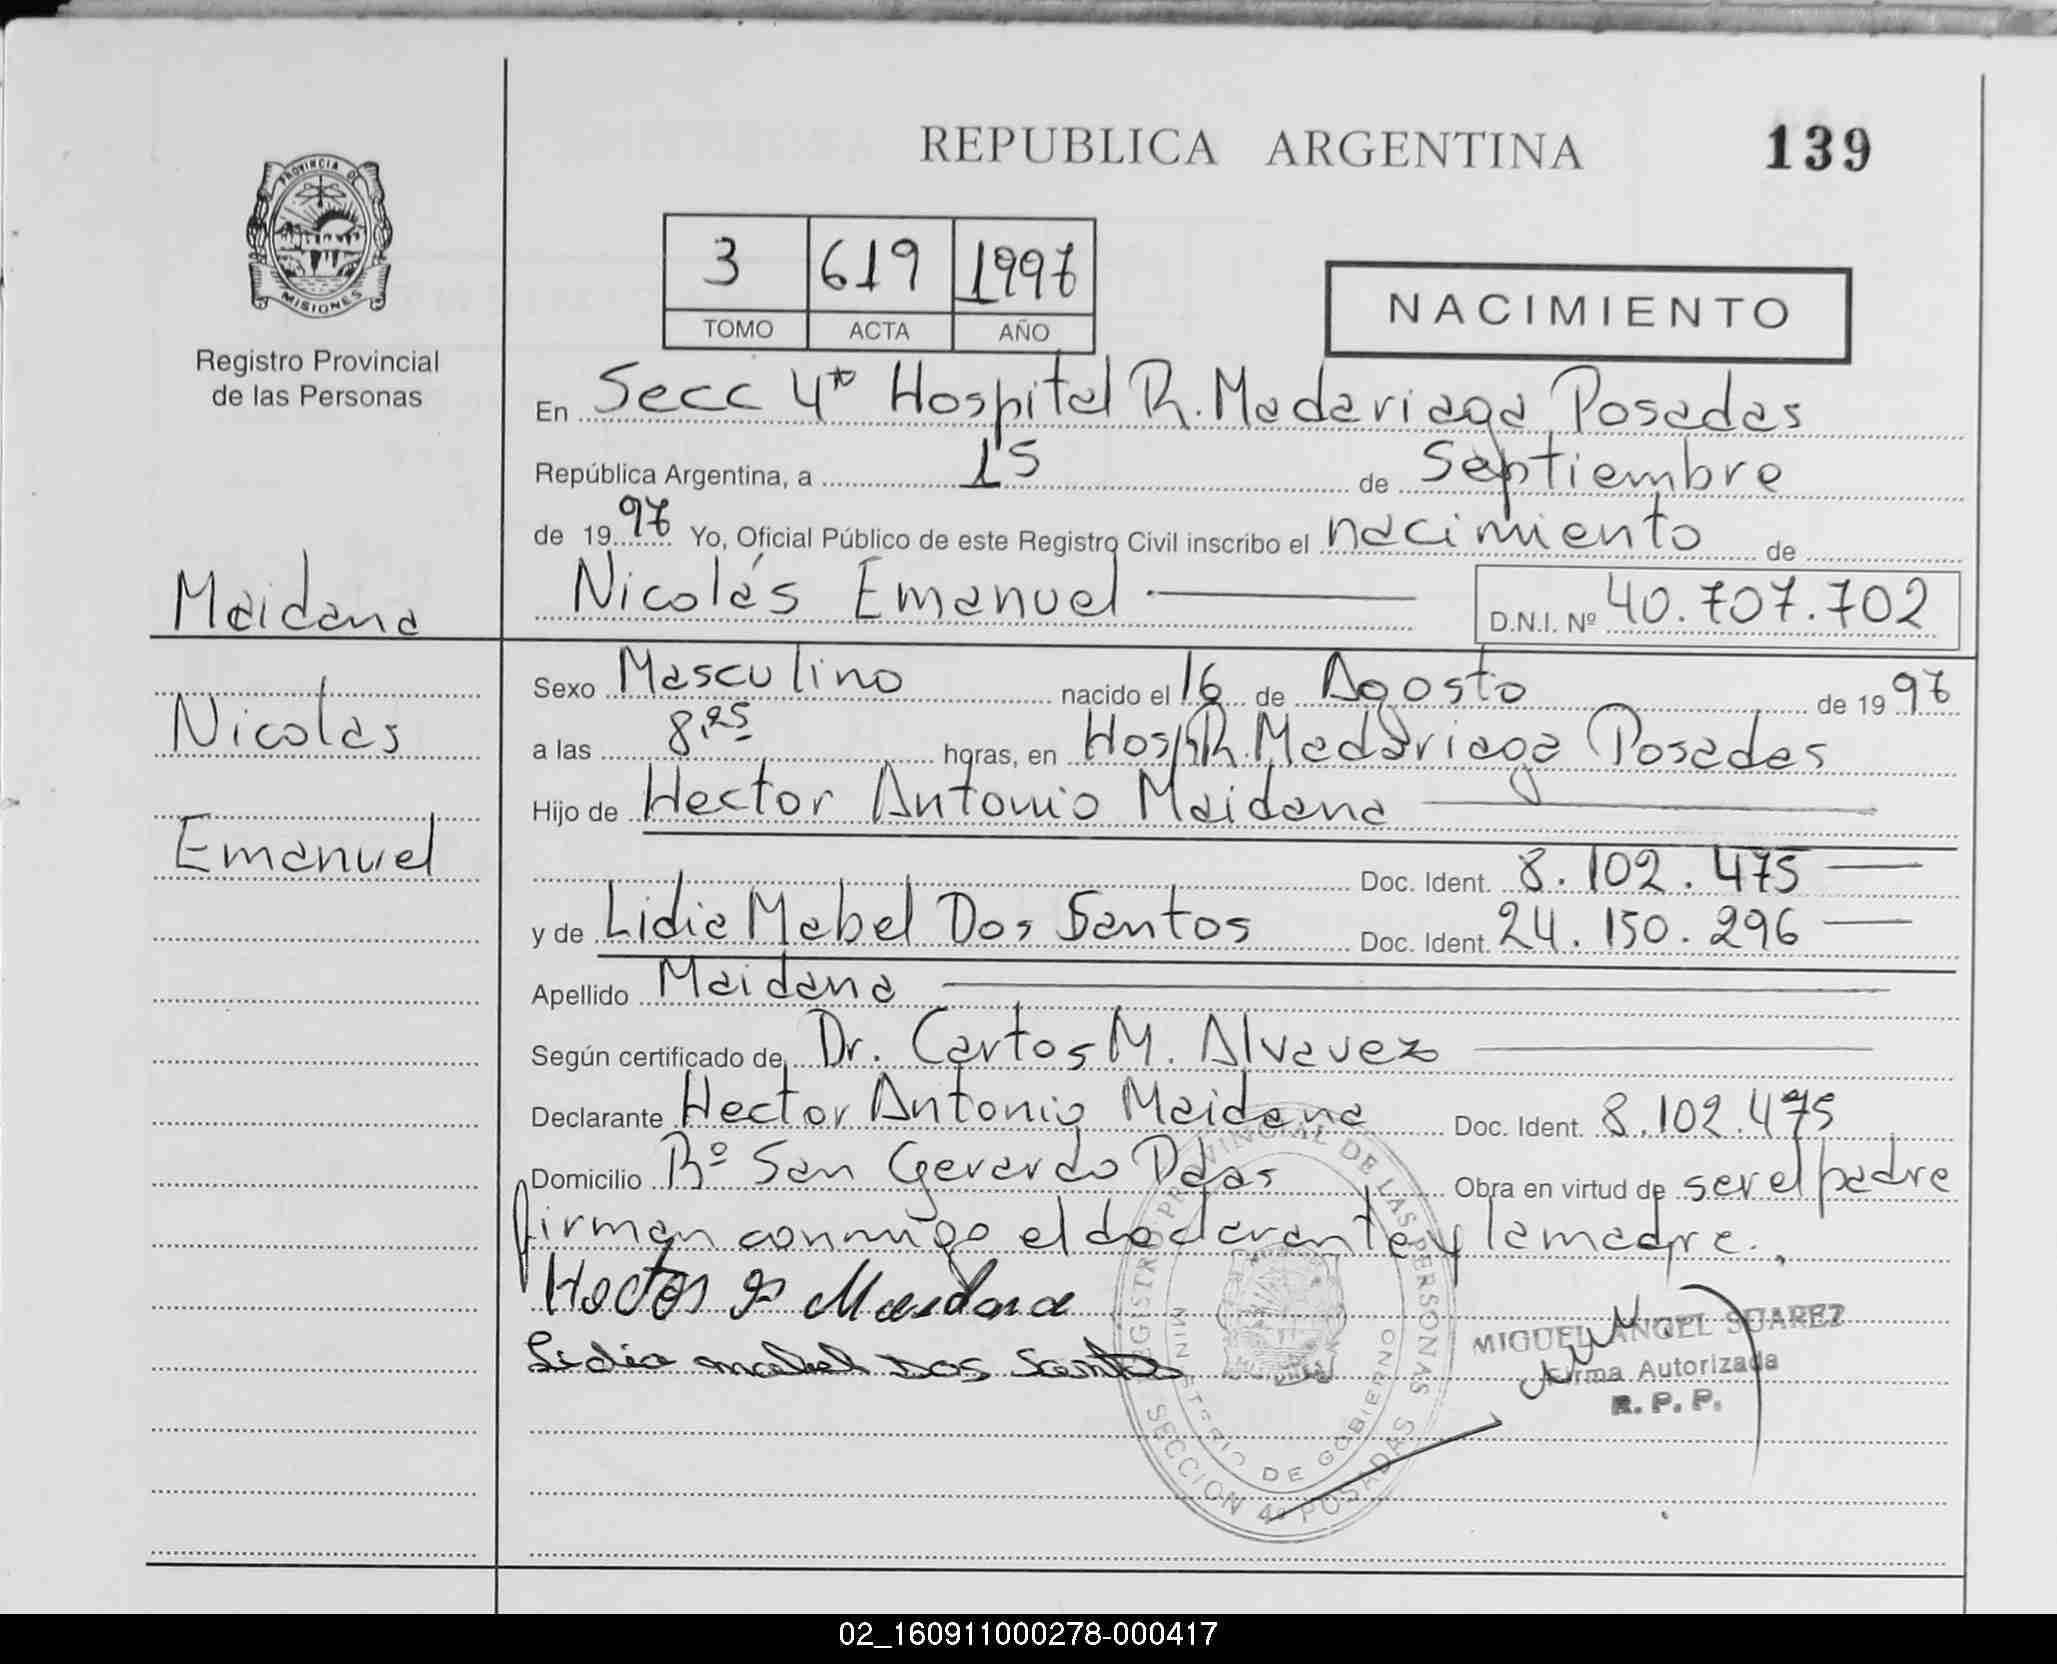 REPUBLICA ARGENTINA
139
PROVINCIA DE
MISIONES
Registro Provincial
de las Personas
3 619 1997
TOMO ACTA AÑO
NACIMIENTO
En Secc 4ta Hospital R. Madariaga Posadas
República Argentina, a 15 de Septiembre
de 1997 Yo, Oficial Público de este Registro Civil inscribo el nacimiento de
Nicolás Emanuel
D.N.I. Nº 40.707.702
Maidana
Nicolas
Emanuel
Sexo Masculino nacido el 16 de Agosto de 1997
a las 8,25 horas, en Hosp R. Madariaga Posadas
Hijo de Hector Antonio Maidana
Doc. Ident. 8.102.475
y de Lidia Mabel Dos Santos Doc. Ident. 24.150.296
Apellido Maidana
Según certificado de Dr. Carlos M. Alvarez
Declarante Hector Antonio Maidana Doc. Ident. 8.102.475
Domicilio Bº San Gerardo Pdas Obra en virtud de ser el padre
firman conmigo el declarante y la madre.
Hector Maidana
Lidia mabel Dos Santos
REGISTRO PROVINCIAL DE LAS PERSONAS
MINISTERIO DE GOBIERNO
SECCION 4ª POSADAS
MIGUEL ANGEL SUAREZ
Firma Autorizada
R. P. P.
02_160911000278-000417